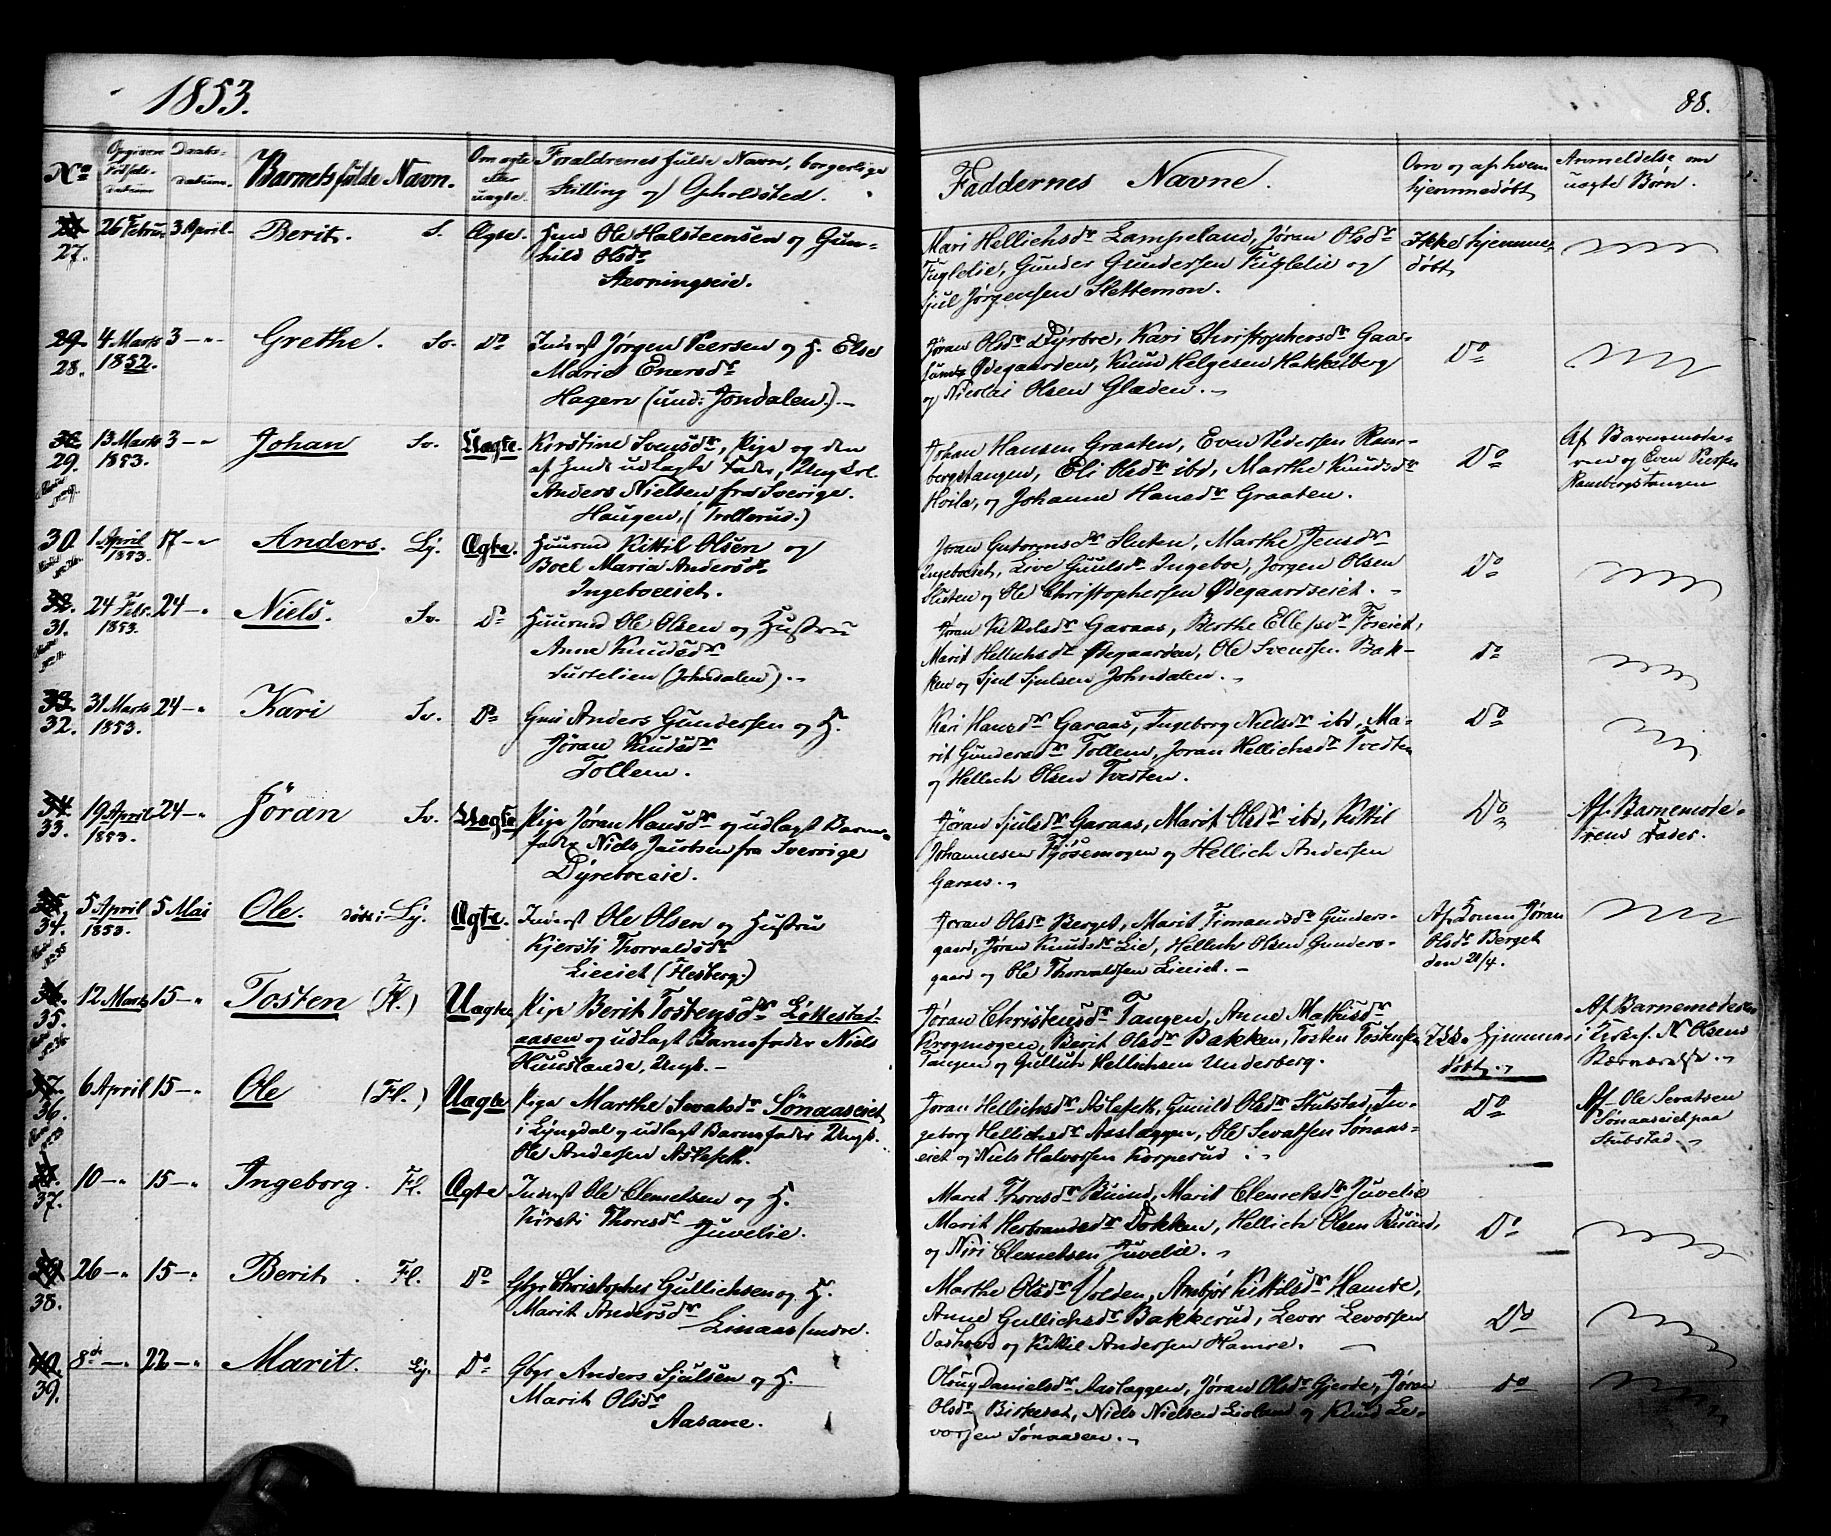 1853.
88.
No
Opgiven Fødsels-datum
Daabs-datum.
Barnets fulde Navn.
Om ægte eller uægte.
Forældrenes fulde Navn, borgerlige
Stilling og Opholdsted.
Faddernes Navne.
Om og af hvem
hjemmedøbt
Anmeldelse om
uægte Børn.
27. 26 Februar 3 April Berit. S. Ægte.
Ole Halsteensen og Gun-
hild Olsdr
Mari Hellichsdr Lampeland, Jøran Olsdr
Fuglelie, Gunder Gundersen Fuglelie og
Sjul Jørgensen Slettemon.
Ikke hjemme-
døbt
29.
28. 4 Marts 1852. 3 -"- Grethe. Sv. Do
Inderst Jørgen Peersen og H. Else
Marie Enersdr
Hagen (und: Jondalen). -
Jøran Olsdr Dyrbre, Kari Christophersdr Gaa-
Ødegaarden, Knud Helgesen Hakkelberg
og Nicolai Olsen Gladen. -
Do
30.
29. 13 Marts 1853. 3 -"- Johan Sv. Uægte.
Kirstine Svensdr, Pige og den
af hende udlagte Fader, Ungkrl.
Anders Nielsen fra Sverige.
Haugen, (Trollerud.)
Johan Hansen Graaten, Even Pedersen Ram-
bergstangen, Eli Olsdr ibd, Marthe Knudsdr
Hvila, og Johanne Hansdr Graaten.
Do
Af Barnemode-
ren og Even Peersen
Rambergstangen
30. 1 April 1853. 17 -"- Anders. Ly. Ægte.
Huusmd Kittil Olsen og
Boel Maria Andersdr
Ingeboeeiet.
Jøran Guttormsdr Slutten, Marthe Jensdr
Ingeboeeiet, Live Guulsdr Ingeboe, Jørgen Olsen
Slutten og Ole Christophersen Ødegaardseiet. -
Do
32.
31. 24 Febr. 1853. 24 -"- Niels. Sv. Do
Huusmd Ole Olsen og Hustru
Anne Knudsdr
(Johndalen). -
Jøran Garaas, Berthe
Marit Hellichsdr Ødegaarden, Ole Svensen Bak-
ken og Sjul Sjulsen Johndalen. -
Do
33.
32. 31 Marts 1853. 24 -"- Kari Sv. Do
Anders Gundersen og H.
Jøran Knudsdr
Tollem.
Kari Hansdr Garaas, Ingeborg Nielsdr ibd, Ma-
rit Gundersdr Tollem, Jøran Hellichsdr Tvedten
og Hellich Olsen Tvedten.
Do
34.
33. 19 April 1853. 24 -"- Jöran Sv. Uægte
Pige Jøran Hansdr og udlagt Barne-
fader Niels Jacobsen fra Sverrige
Dyreboeeie.
Jøran Sjulsdr Garaas, Marit Olsdr ibd, Kittil
Johannesen Tjøsemogen og Hellich Andersen
Garaas. -
Do
Af Barnemode-
rens Fader.
35.
34. 5 April 1853. 5 Mai Ole. døbt i Ly. Ægte.
Inderst Ole Olsen og Hustru
Kjersti Thorvaldsdr
Lieeiet (Flesberg.)
Jøran Olsdr Berget, Marit Gunders-
gaard, Jøran Knudsdr Lie, Hellich Olsen Gunders-
gaard og Ole Thorvaldsen Lieeiet. -
Af Jøran
Olsdr Berget
den 28/4.
36.
35. 12 Marts 15 -"- Tosten (Fl.) Uægte
Pige Berit Tostensdr Løkkestad-
aasen og udlagt Barnefader Niels
Ungk. -
Jøran Christensdr Tangen, Anne Mathisdr
Krogmogen, Berit Olsdr Bakken, Tosten Tostensen
Tangen og Gullich Hellichsen Underberg.
Ikke hjemme-
døbt. -
Af Barnemoderen
i N. Olsens
Nærværelse. -
37.
36. 6 April 15 -"- Ole (Fl.) Uægte
Pige Marthe Sevatsdr Sönaaseiet
i Lyngdal og udlagt Barnefader Ungk.
Ole Andersen Aslefeth.
Jøran Hellichsdr Aslefeth, Gunild Olsdr Stubstad, In-
geborg Hellichsdr Aaslaggen, Ole Sevatsen Sønaas-
eiet og Niels Halvorsen Korperud. -
Do
Af Ole Sevatsen
Sønaaseiet paa
Stubstad. -
37. 10 -"- 15 -"- Ingeborg. Fl. Ægte
Inderst Ole Clemetsen og H.
Kirsti Thoresdr Juvelie.
Marit Thoresdr Buind, Marit Clemetsdr Juvelie
Marit Herbrandsdr Dokken, Hellich Olsen Buind,
og Niri Clemetsen Juvelie. -
Do
39.
38. 26 -"- 15 -"- Berit. Fl. Do
Gbgr Christopher Gullichsen og H.
Marit Andersdr
Linaas (nedre.
Marthe Olsdr Volden, Ambjør Kittilsdr Hamre,
Anne Gullichsdr Bakkerud, Levor Levorsen
og Kittil Andersen Hamre.
Do
40.
39. 8de -"- 22 -"- Marit. Ly. Do
Gbgr Anders Sjulsen og H.
Marit Olsdr
Aasane.
Oloug Danielsdr Aaslaggen, Jøran Olsdr Gjerde, Jøran
Olsdr Niels Nielsen Lieland og Knud Le-
vorsen Sönaasen. -
Do